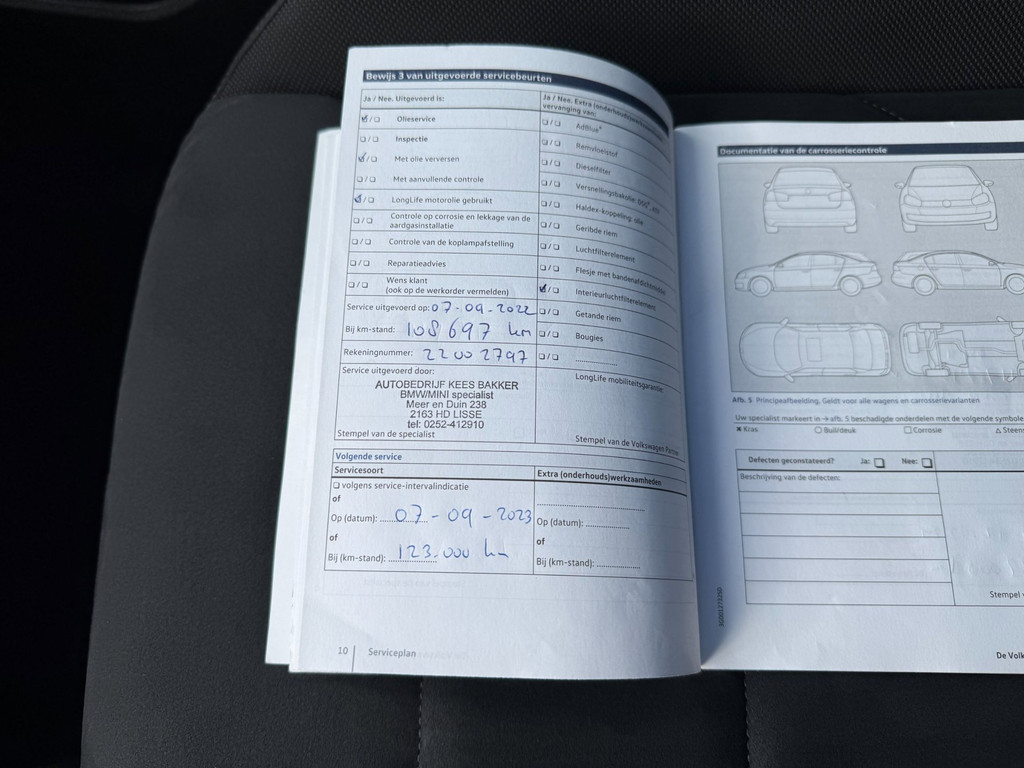 Bewijs 3 van uitgevoerde servicebeurten
Ja / Nee, Uitgevoerd is:
☑/☐ Olieservice
☐/☐ Inspectie
☑/☐ Met olie verversen
☐/☐ Met aanvullende controle
☑/☐ LongLife motorolie gebruikt
☐/☐ Controle op corrosie en lekkage van de
aardgasinstallatie
☐/☐ Controle van de koplampafstelling
☐/☐ Reparatieadvies
☐/☐ Wens klant
(ook op de werkorder vermelden)
Service uitgevoerd op: 07-09-2022
Bij km-stand: 108 697 km
Rekeningnummer: 22002797
Service uitgevoerd door:
AUTOBEDRIJF KEES BAKKER
BMW/MINI specialist
Meer en Duin 238
2163 HD LISSE
tel: 0252-412910
Stempel van de specialist
Ja / Nee, Extra (onderhouds)
vervanging van:
☐/☐ AdBlue®
☐/☐ Remvloeistof
☐/☐ Dieselfilter
☐/☐ Versnellingsbakolie:
☐/☐ Haldex-koppeling: olie
☐/☐ Geribde riem
☐/☐ Luchtfilterelement
☐/☐ Flesje met bandenafdichtmiddel
☑/☐ Interieurluchtfilterelement
☐/☐ Getande riem
☐/☐ Bougies
☐/☐ ............
LongLife mobiliteitsgarantie:
Stempel van de Volkswagen Partner
Volgende service
Servicesoort
☐ volgens service-intervalindicatie
of
Op (datum): 07-09-2023
of
Bij (km-stand): 123.000 km
Extra (onderhouds)werkzaamheden
Op (datum): ............
of
Bij (km-stand): ............
10 Serviceplan
Documentatie van de carrosseriecontrole
Afb. 5 Principeafbeelding, Geldt voor alle wagens en carrosserievarianten
Uw specialist markeert in → afb. 5 beschadigde onderdelen met de volgende symbole
✖ Kras ○ Buil/deuk ☐ Corrosie △ Steens
Defecten geconstateerd? Ja: ☐ Nee: ☐
Beschrijving van de defecten:
Stempel
De Volk